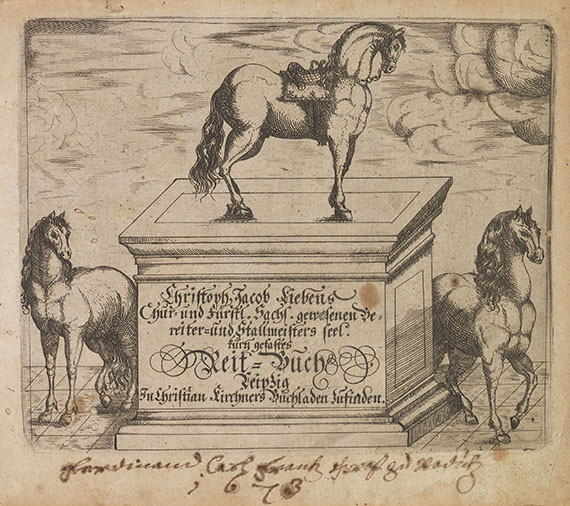 Christoph Jacob Liebens
Chur- und Fürstl. Sächs. gewesenen Be-
reiter- und Stallmeisters seel.
kurtz gefastes
Reit-Buch
Leipzig
In Christian Kirchners Buchladen zufinden.
Ferdinand Carl Frantz
1673